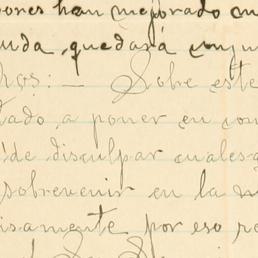 ores han mejorado
uda, quedará
hos: — Sobre este
tado, a poner en
de disculpar
sobrevenir en la
isamente por eso